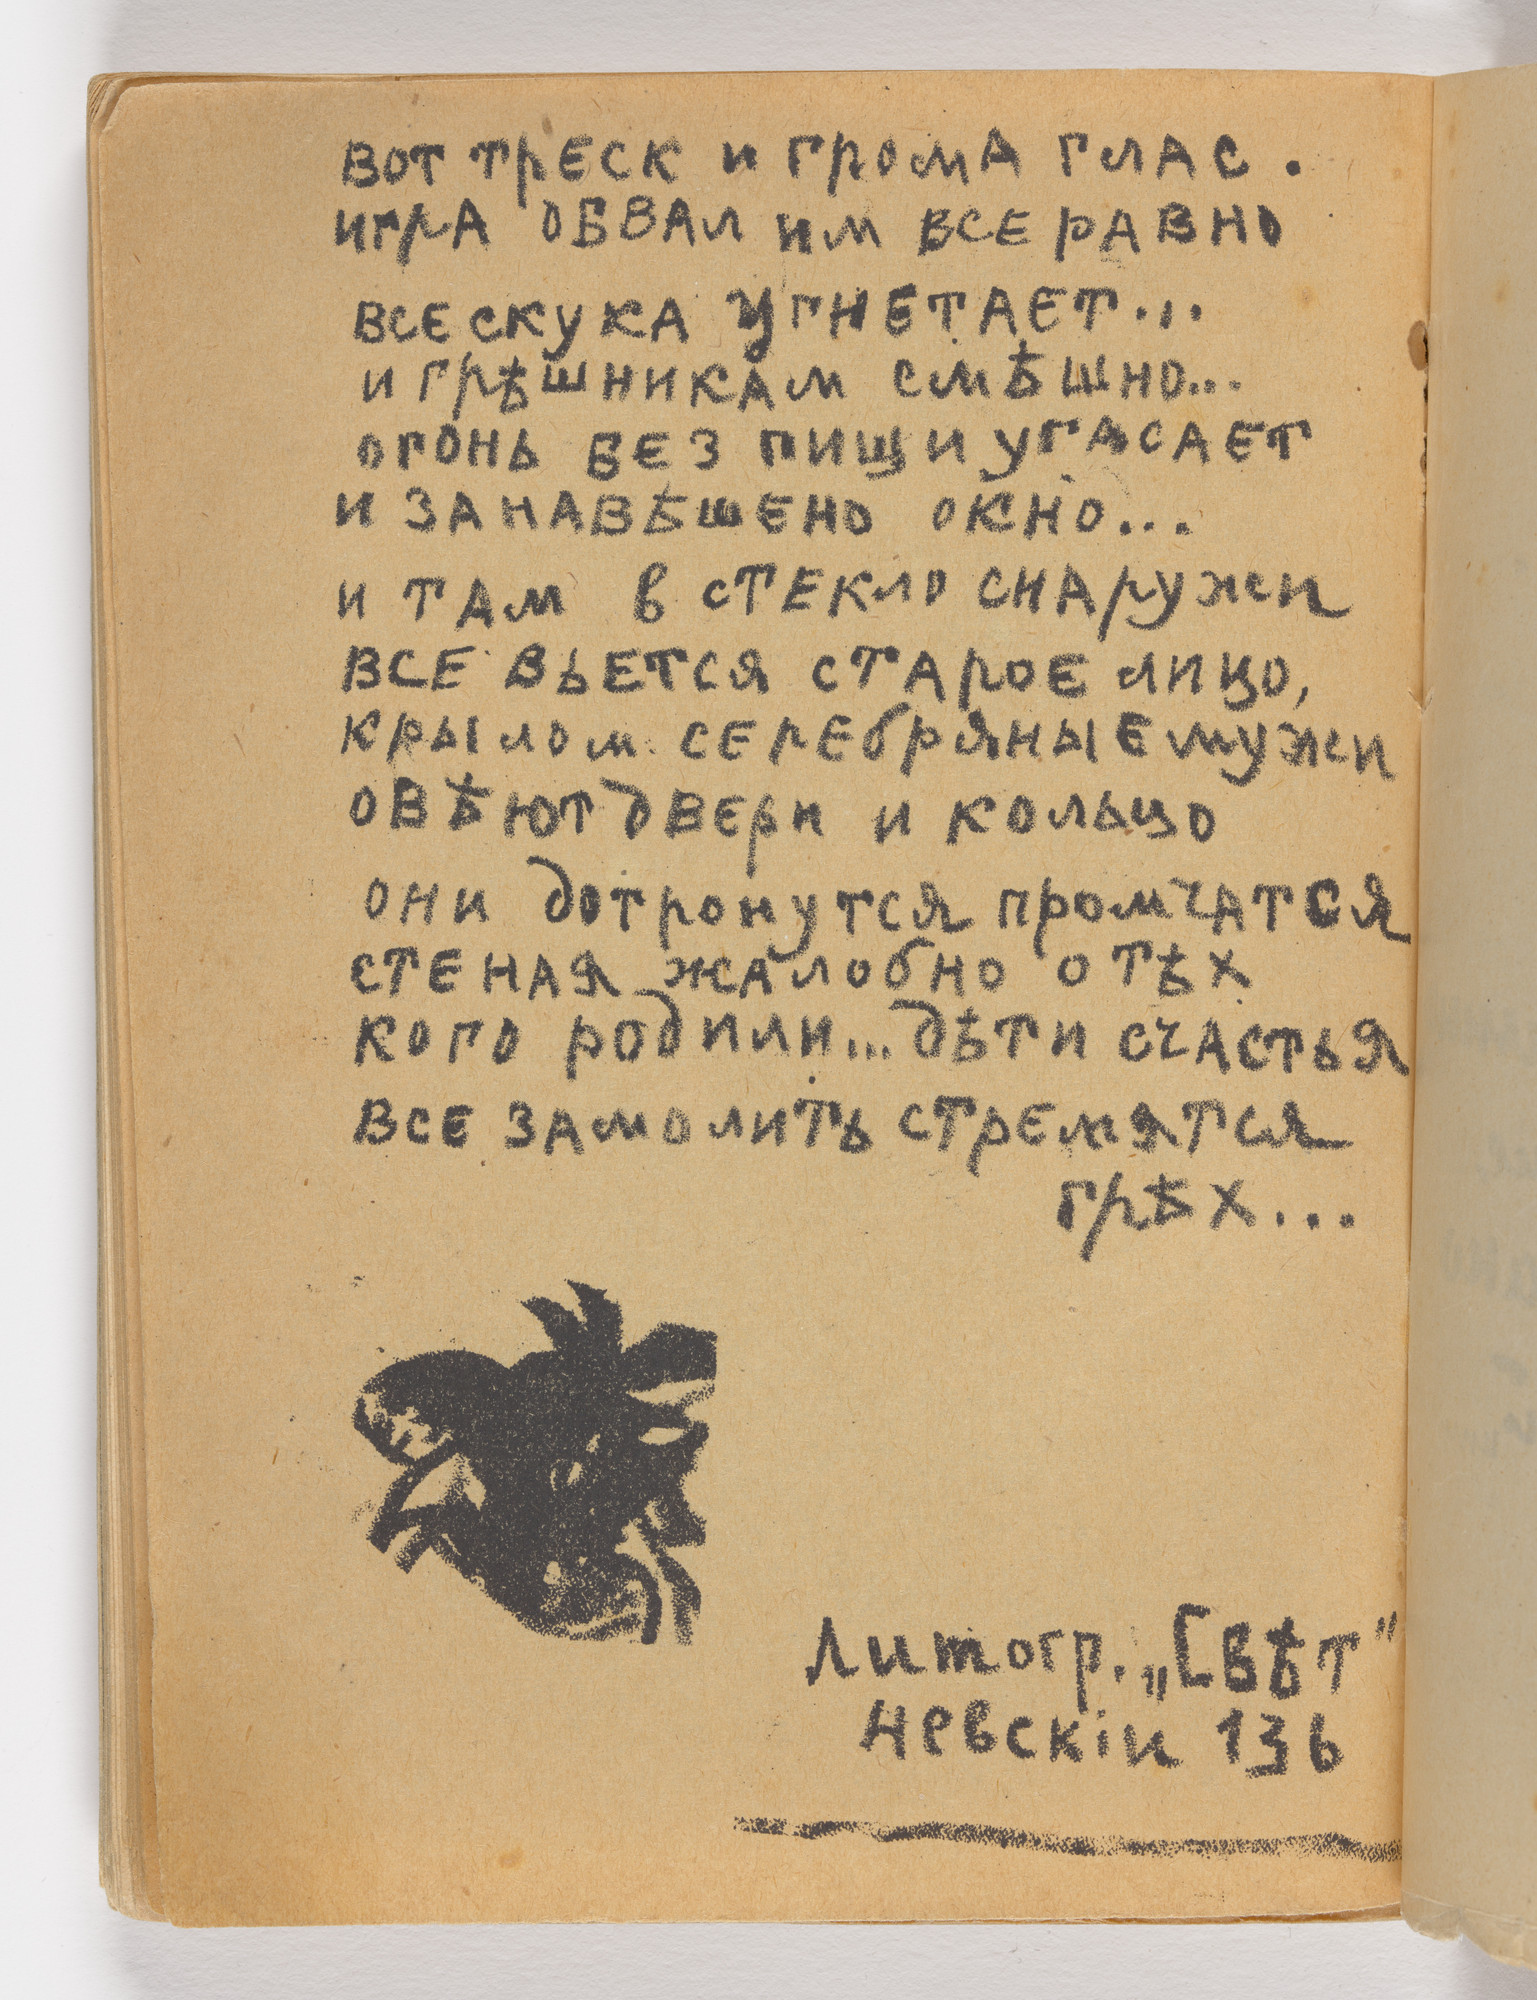 вот треск и грома глас.
игра обвал им все равно
все скука угнетает...
и грѣшникам смѣшно...
огонь без пищи угасает
и занавѣшено окно...
и там в стекло снаружи
все вьется старое лицо,
крылом серебряные мужи
овѣют двери и кольцо
они дотронутся промчатся
стеная жалобно о тѣх
кого родили... дѣти счастья
все замолить стремятся
грѣх...
литогр. „Свѣт"
невскiи 136